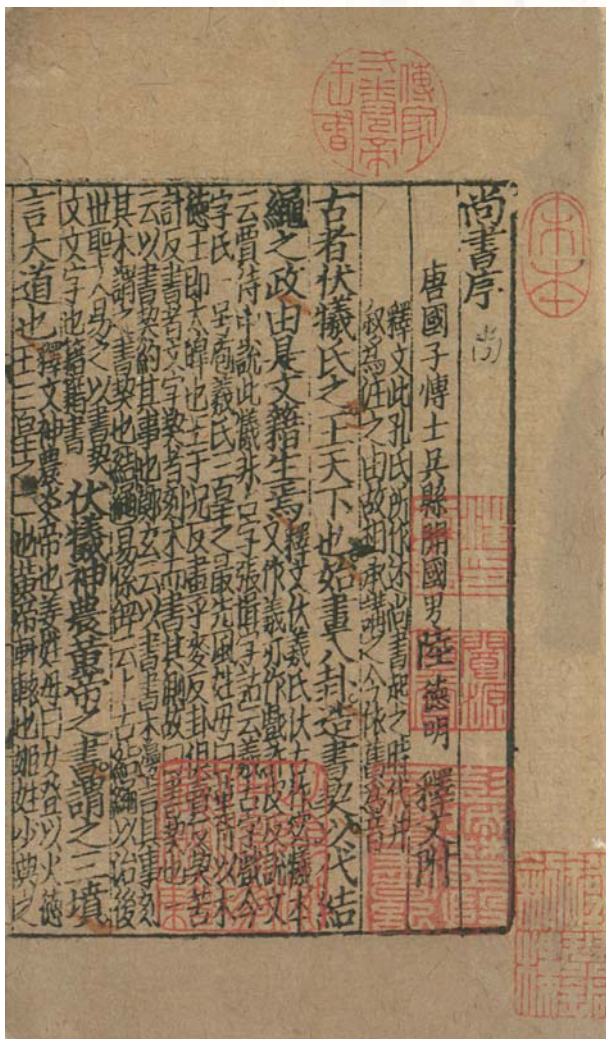 宋本
尚書序
尚
唐國子博士吳縣開國男陸德明 釋文附
釋文此孔氏所作述尚書起之時代并
叙為注之由故相承講之今依舊為音
古者伏犧氏之王天下也始畫八卦造書契以代結
繩之政由是文籍生焉
釋文伏羲氏伏古作虙犧本
又作羲亦作戲許皮反說文
云賈侍中說此犧非古字張揖字詁云羲古字戲今
字氏一号庖羲氏三皇之最先風姓母曰華胥以木
德王即太皥也王于況反畫乎麥反卦俱賣反契苦
計反書者文字契者刻木而書其側故曰書契也一
云以書契約其事也鄭玄云以書書木邊言其事刻
其木謂之書契也結繩易係辭云上古結繩以治後
世聖人易之以書契
文文字也籍籍書
伏犧神農黃帝之書謂之三墳
言大道也
釋文神農炎帝也姜姓母曰女登以火德
王三皇之二也黃帝軒轅也姬姓少典之